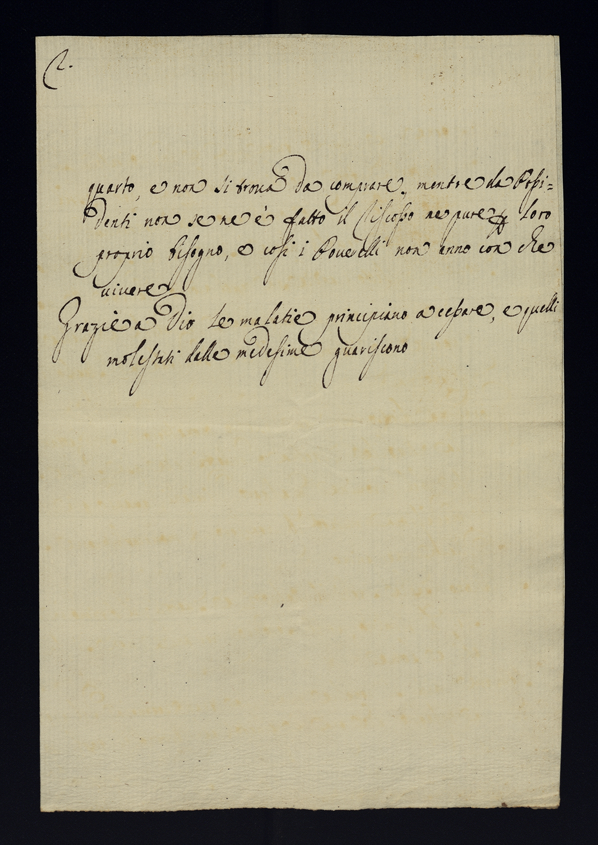 2.
quarto, e non si trova da comprare, mentre da Possi=
denti non se ne è fatto il riscosso ne pure p loro
proprio bisogno, e così i Poverelli non anno con che
vivere
Grazie a Dio le malatie principiano a cessare, e quelli
molestati dalle medesime guariscono